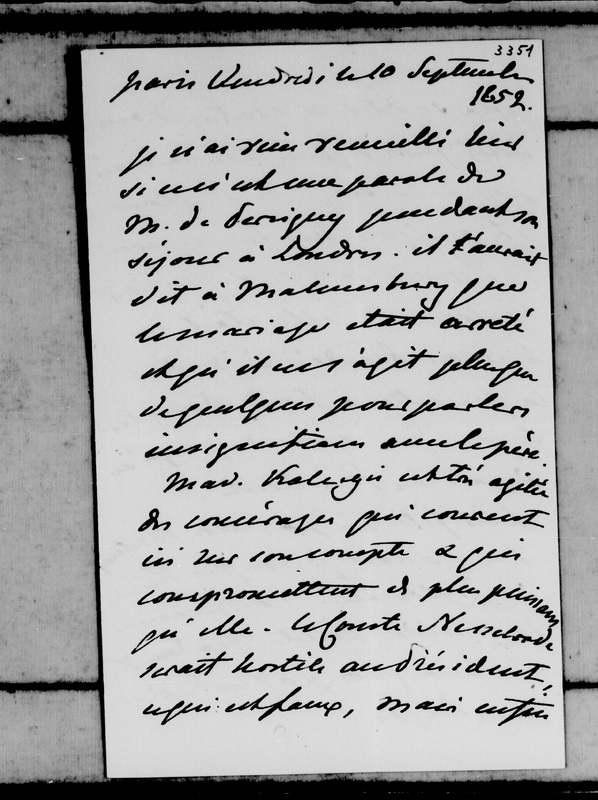 3351
Paris Vendredi le 10 Septembre
1852.
je n'ai rien recueilli hier
si ce n'est une parole de
M. de Persigny pendant son
séjour à Londres. il aurait
dit à Malmesbury que
le mariage était arrêté
et qu'il ne s'agit plus que
de quelques pourparlers
insignifians avec le père.
Mad. Kalergi est très agitée
des comérages qui courent
ici sur son compte & qui
compromettent de plus puissans
qu'elle. le Comte Nesselrode
serait hostile au Président,
ce qui est faux, mais enfin